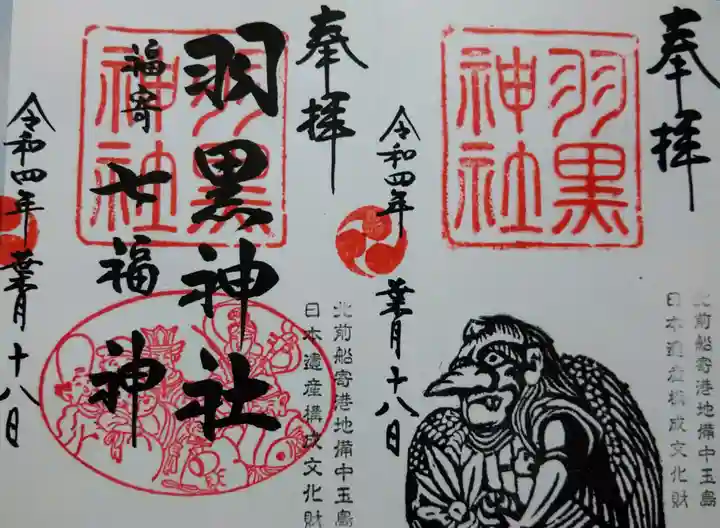 奉拝
羽黒
神社
令和四年 葉月十八日
北前船寄港地備中玉島
日本遺産構成文化財
奉拝
羽黒
神社
羽黒神社
福寄 七福神
令和四年 葉月十八日
北前船寄港地備中玉島
日本遺産構成文化財